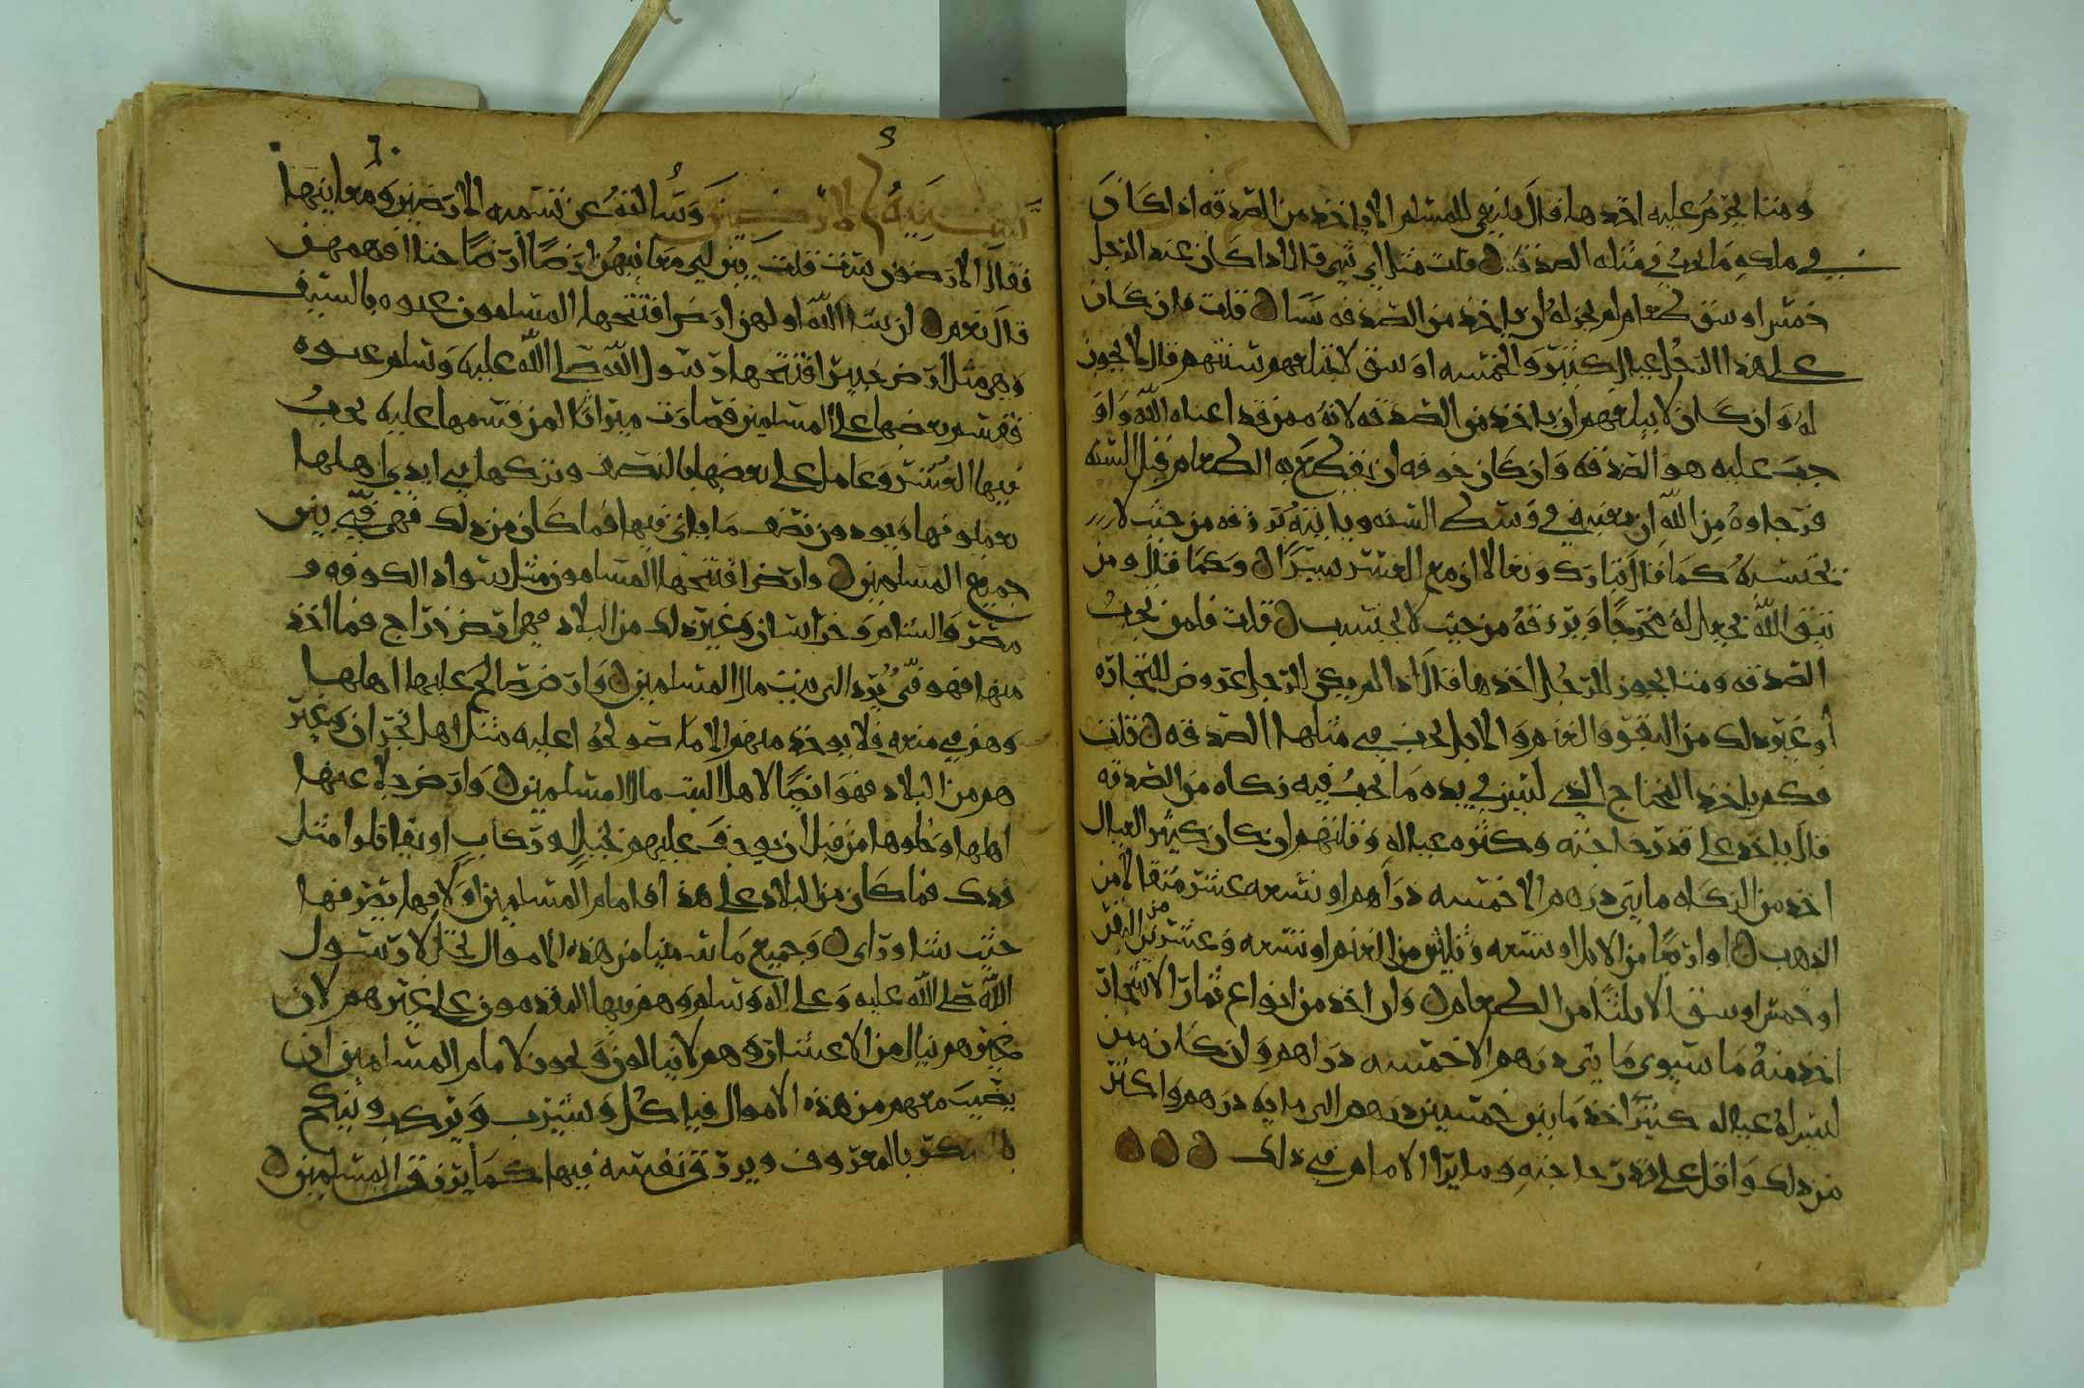 ومتا يحرم عليه اخذها قال ينبغي للمسلم الا ياخذ من الصدقه اذا كان
في ملكه ما يجب في مثله الصدقه قلت مثل اي شي قال اذا كان عند الرجل
خمسه اوسق طعام لم يجز له ان ياخذ من الصدقه شيا قلت فان كان
على هذا الرجل عيال كثير والخمسه اوسق لا تبلغهم سنتهم قال لا يجوز
له وان كان لا يبلغهم ان ياخذ من الصدقه لانه ممن قد اغناه الله واو
جب عليه هو الصدقه وان كان خوفه ان ينقطع به الطعام قبل السنه
فرجاوه من الله ان يغنيه في وسط السنه وياتيه برزقه من حيث لا
يحتسبه كما قال تبارك وتعالى ان مع العسر يسرا وكما قال ومن
يتق الله يجعل له مخرجا ويرزقه من حيث لا يحتسب قلت فلمن تجب
الصدقه ومتا يجوز للرجل اخذها قال اذا لم يكن للرجل عروض للتجاره
او غير ذلك من البقر والغنم والابل يجب في مثلها الصدقه قلت
فكم ياخذ المحتاج الذي ليس في يده ما يجب فيه زكاه من الصدقه
قال ياخذ على قدر حاجته وكثره عياله وقلتهم ان كان كثير العيال
اخذ من الزكاه مايتي درهم الا خمسه دراهم او تسعه عشر مثقالا من
الذهب او اربعا من الابل او تسعه وثلثين من الغنم او تسعه وعشرين من البقر
او خمسه اوسق الا ثلثا من الطعام وان اخذ من انواع ثمار الاشجار
اخذ منه ما يسوى مايتي درهم الا خمسه دراهم وان كان ممن
ليس له عيال كثير اخذ ما بين خمسين درهم الى مايه درهم واكثر
من ذلك واقل على قدر حاجته وما يرا الامام في ذلك
تسميه الارضين وسالته عن تسميه الارضين ومعانيها
فقال الارضون ست قلت بين لي معانيهن ارضا ارضا حتا افهمهن
قال نعم ان شا الله اولهن ارض افتتحها المسلمون عنوه بالسيف
وهي مثل ارض خيبر افتتحها رسول الله صلى الله عليه وسلم عنوه
فقسم بعضها على المسلمين فصارت ميراثا لمن قسمها عليه يجب
فيها العشر وعامل على بعضها بالنصف وتركها في ايدي اهلها
يعملونها ويودون نصف ما ياتي فيها فما كان من ذلك فهي في بين
جميع المسلمين وارض افتتحها المسلمون مثل سواد الكوفه و
مصر والشام وخراسان وغير ذلك من البلاد فهي ارض خراج فما اخذ
منها فهو في يرد الى بيت مال المسلمين وارض صالح عليها اهلها
وهم في منعه فلا يوخذ منهم الا ما صولحوا عليه مثل اهل نجران وغير
هم من البلاد فهو ايضا لاهل البيت مال المسلمين وارض جلا عنها
اهلها وخلوها من قبل ان يوجف عليهم بخيل وركاب او يقاتلوا مثل
فدك فما كان من البلاد على هذا فامام المسلمين اولى فيها يصرفها
حيث شا وراى وجميع ما سمينا من هذه الاموال تحل لال رسول
الله صلى الله عليه وعلى اله وسلم وهم فيها المقدمون على غيرهم لان
غيرهم ينال من الاعشار وهم لا ينالون ويجوز لامام المسلمين ان
يصيب معهم من هذه الاموال فياكل ويشرب ويركب وينكح
بالمعروف ويرزق نفسه فيها كما يرزق المسلمين